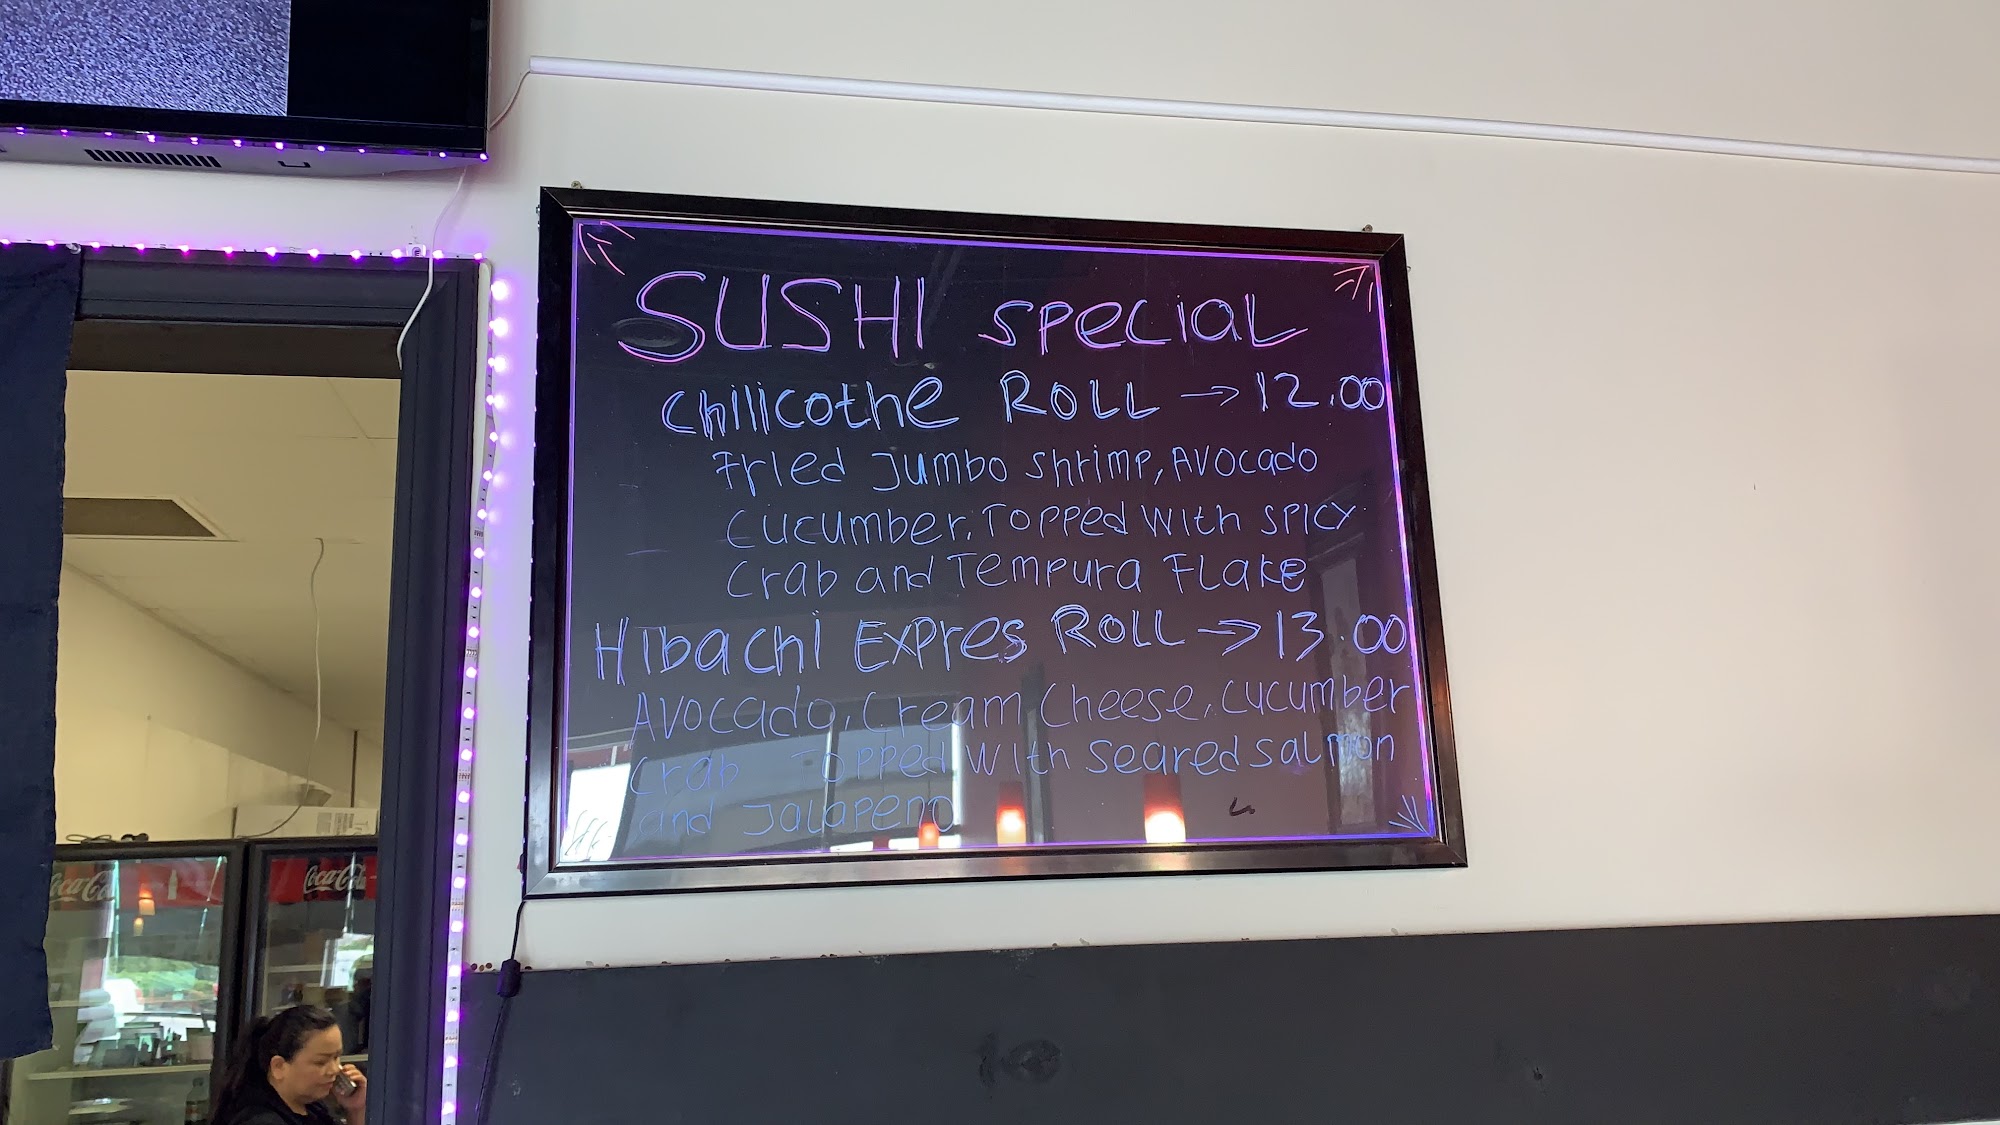 SUSHI SPECIAL
Chilicothe ROLL → 12.00
Fried Jumbo Shrimp, Avocado
Cucumber, Topped With Spicy
Crab and Tempura Flake
Hibachi Expres ROLL → 13.00
Avocado, Cream Cheese, Cucumber
Crab Topped With Seared Salmon
and Jalapeno
Coca-Cola
Coca-Cola